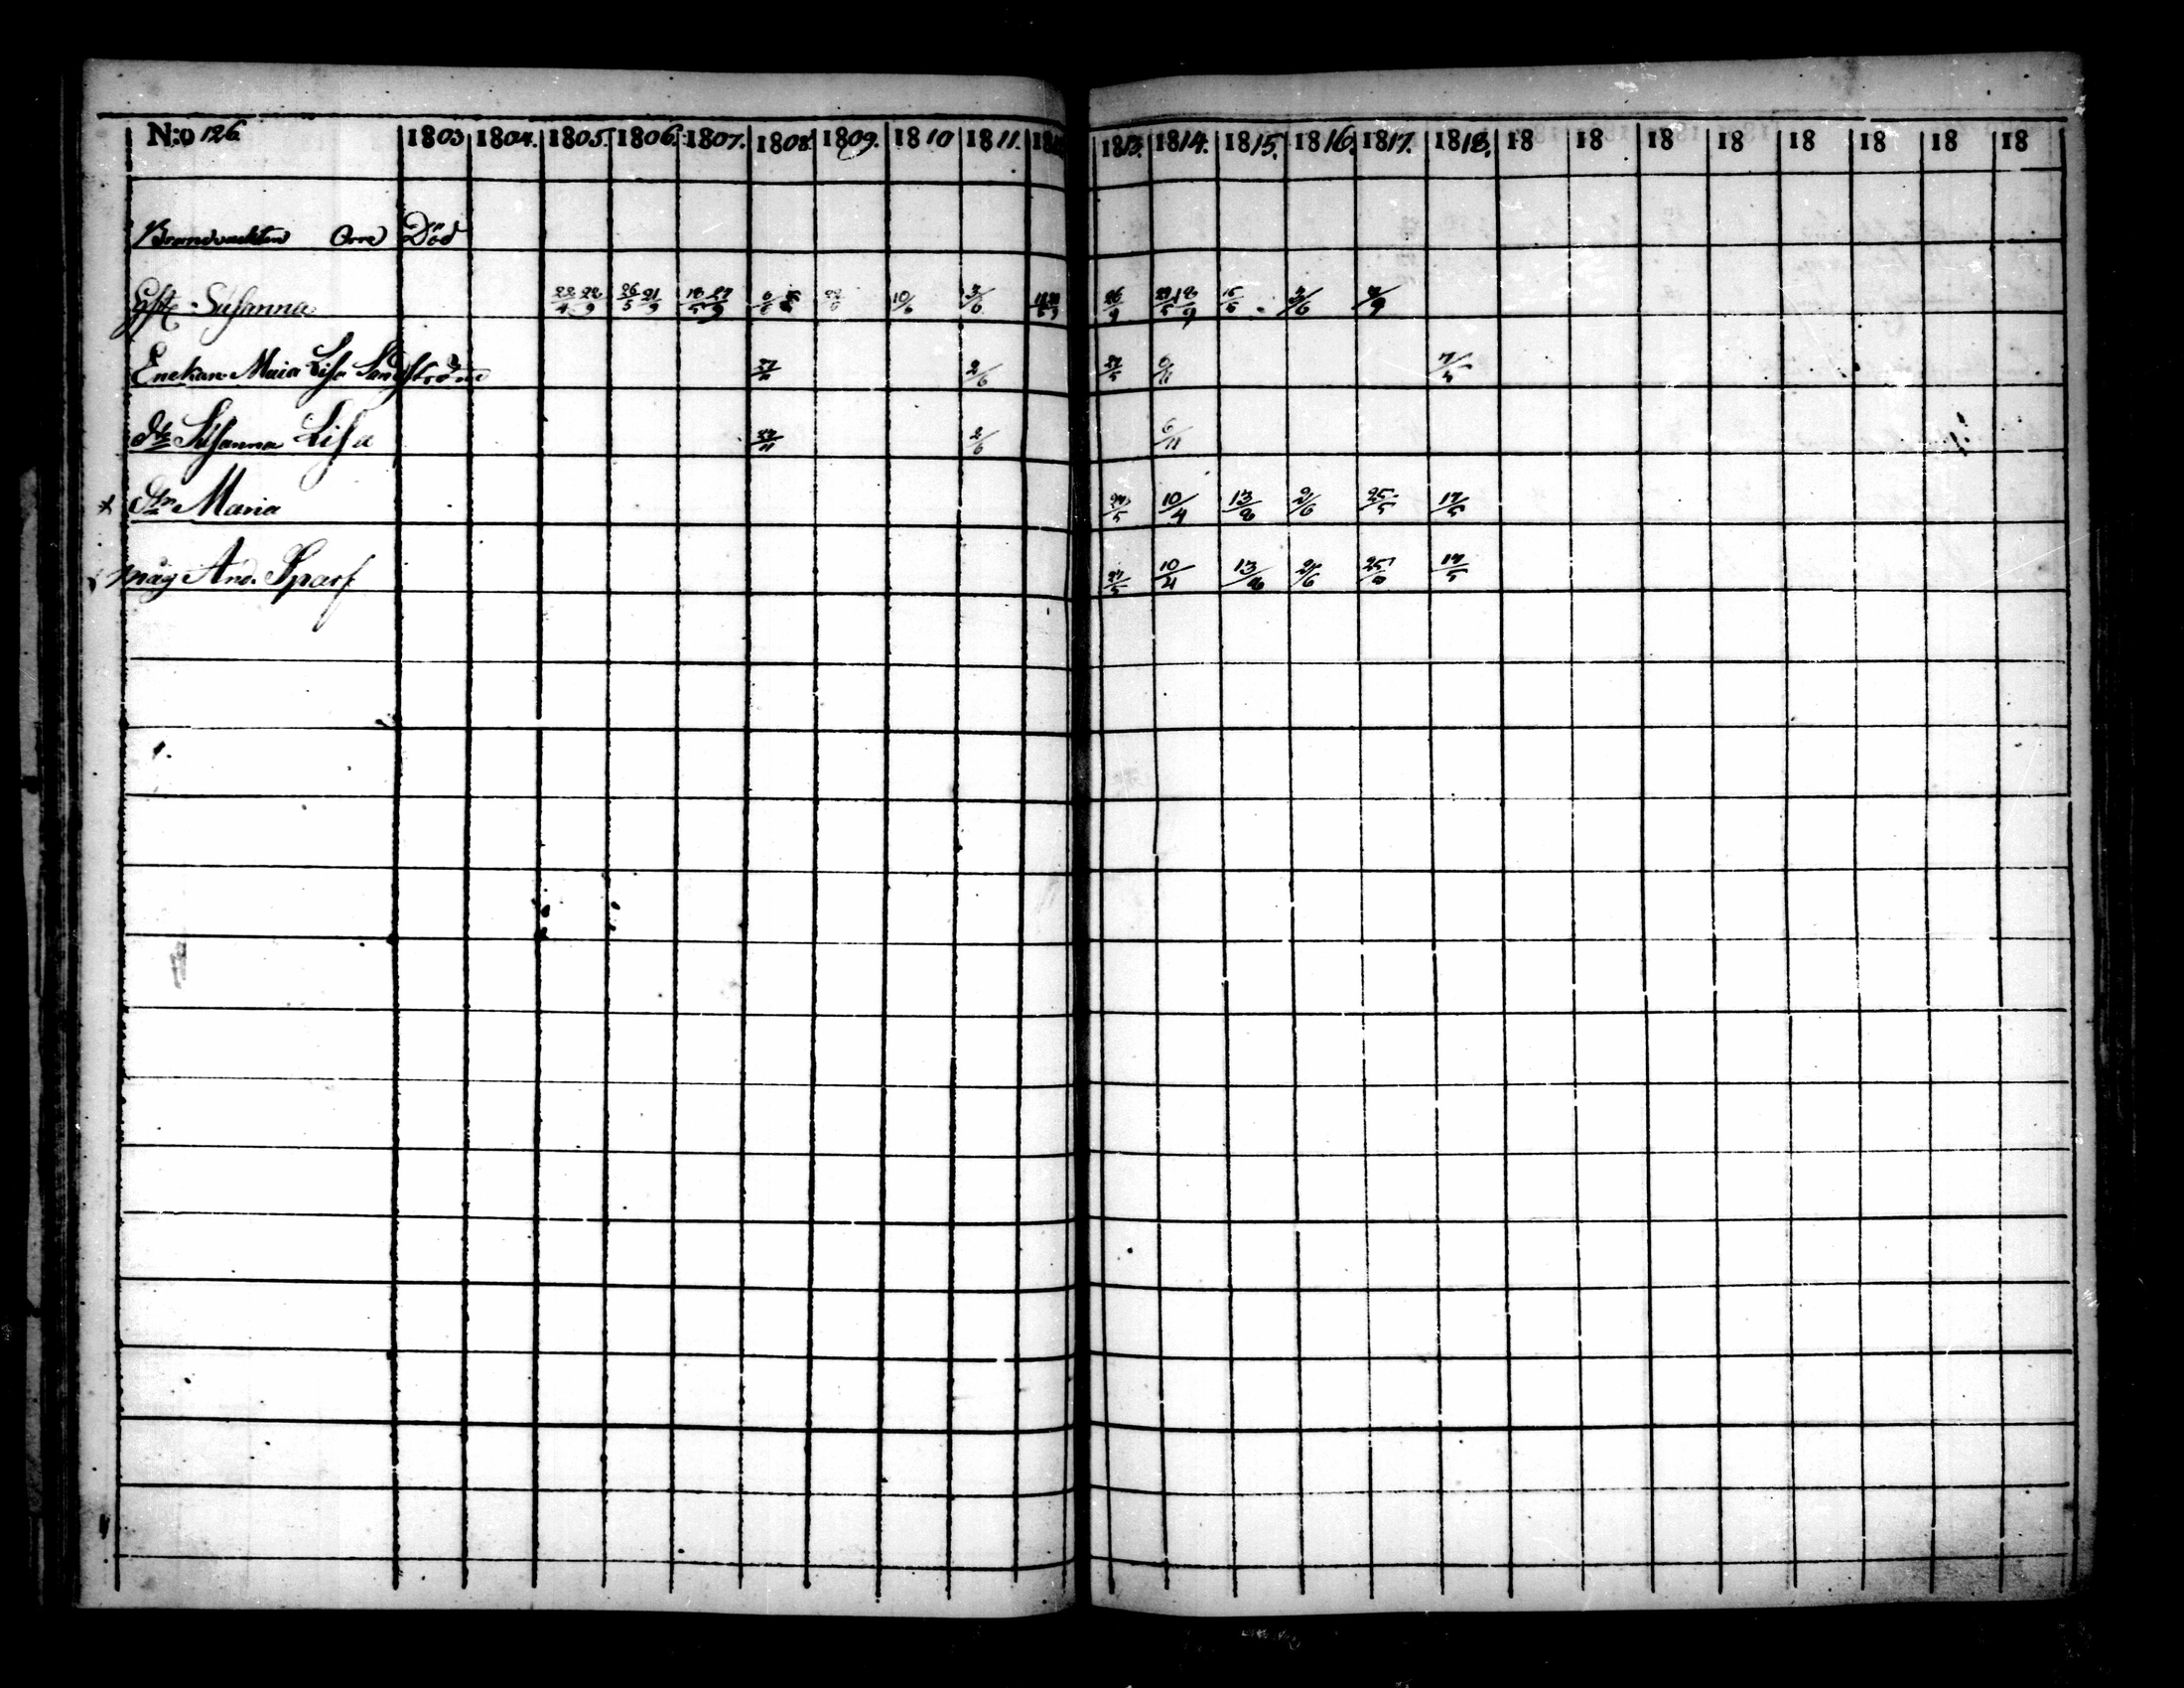 N:o 126 1803 1804. 1805. 1806. 1807. 1808. 1809. 1810 1811. 1813. 1814. 1815. 1816. 1817. 1818. 18 18 18 18 18 18 18 18
Brandvackten Orre Död
Susanna 22/4 28/9 26/5 21/9 18/5 27/9 10/6 3/6 26/9 15/5 3/6 7/9
Enckan Maia Lisa Sandström 27/11 2/6 27/5 6/11 7/5
Susanna Lisa 27/11 2/6 6/11
Maria 27/5 10/4 13/8 2/6 25/5 17/5
måg And. Sparf 27/5 10/4 13/8 2/6 25/5 17/5